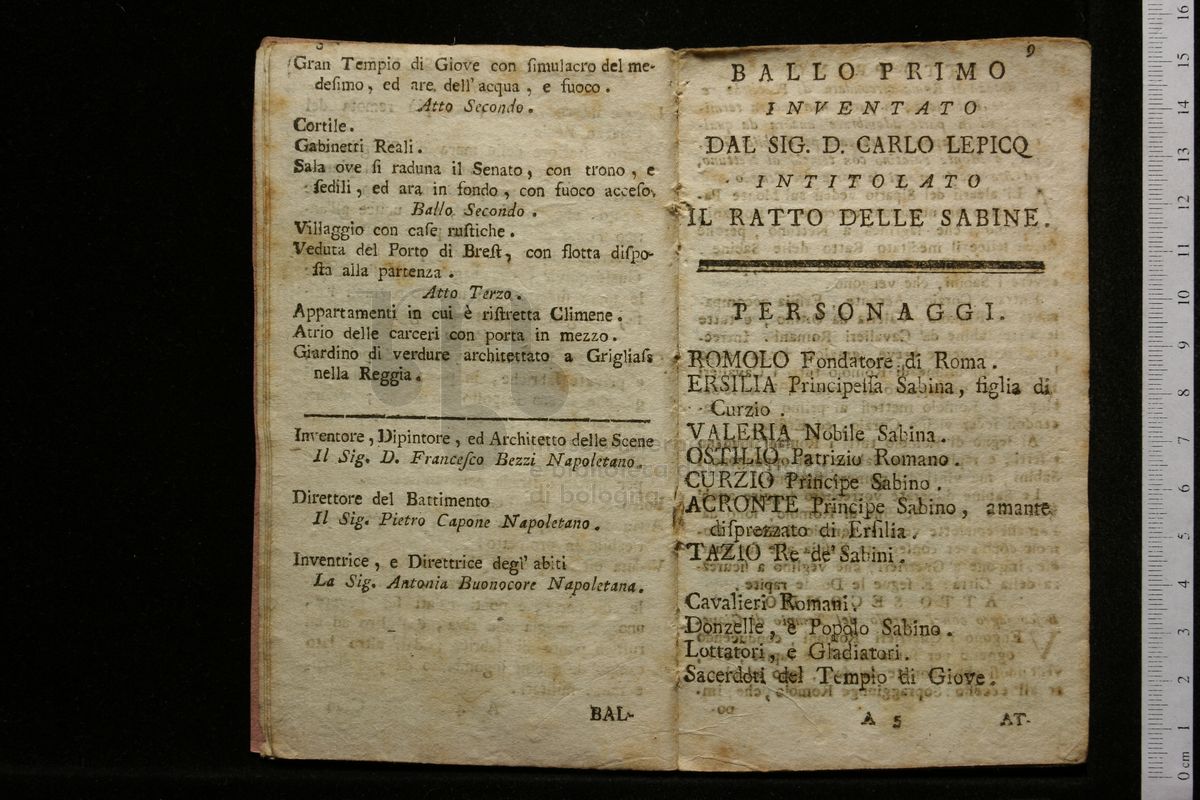 8
Gran Tempio di Giove con ſimulacro del me-
deſimo, ed are dell' acqua, e fuoco.
Atto Secondo.
Cortile.
Gabinetti Reali.
Sala ove ſi raduna il Senato, con trono, e
ſedili, ed ara in fondo, con fuoco acceſo.
Ballo Secondo.
Villaggio con caſe ruſtiche.
Veduta del Porto di Breſt, con flotta diſpo-
ſta alla partenza.
Atto Terzo.
Appartamenti in cui è riſtretta Climene.
Atrio delle carceri con porta in mezzo.
Giardino di verdure architettato a Grigliaſs
nella Reggia.
Inventore, Dipintore, ed Architetto delle Scene
Il Sig. D. Franceſco Bezzi Napoletano.
Direttore del Battimento
Il Sig. Pietro Capone Napoletano.
Inventrice, e Direttrice degl' abiti
La Sig. Antonia Buonocore Napoletana.
BAL-
9
BALLO PRIMO
INVENTATO
DAL SIG. D. CARLO LEPICQ
INTITOLATO
IL RATTO DELLE SABINE.
PERSONAGGI.
ROMOLO Fondatore di Roma.
ERSILIA Principeſſa Sabina, figlia di
Curzio.
VALERIA Nobile Sabina.
OSTILIO Patrizio Romano.
CURZIO Principe Sabino.
ACRONTE Principe Sabino, amante
diſprezzato di Erſilia.
TAZIO Re de' Sabini.
Cavalieri Romani.
Donzelle, e Popolo Sabino.
Lottatori, e Gladiatori.
Sacerdoti del Tempio di Giove.
A 5 AT-
di bologna
0 cm 1 2 3 4 5 6 7 8 9 10 11 12 13 14 15 16